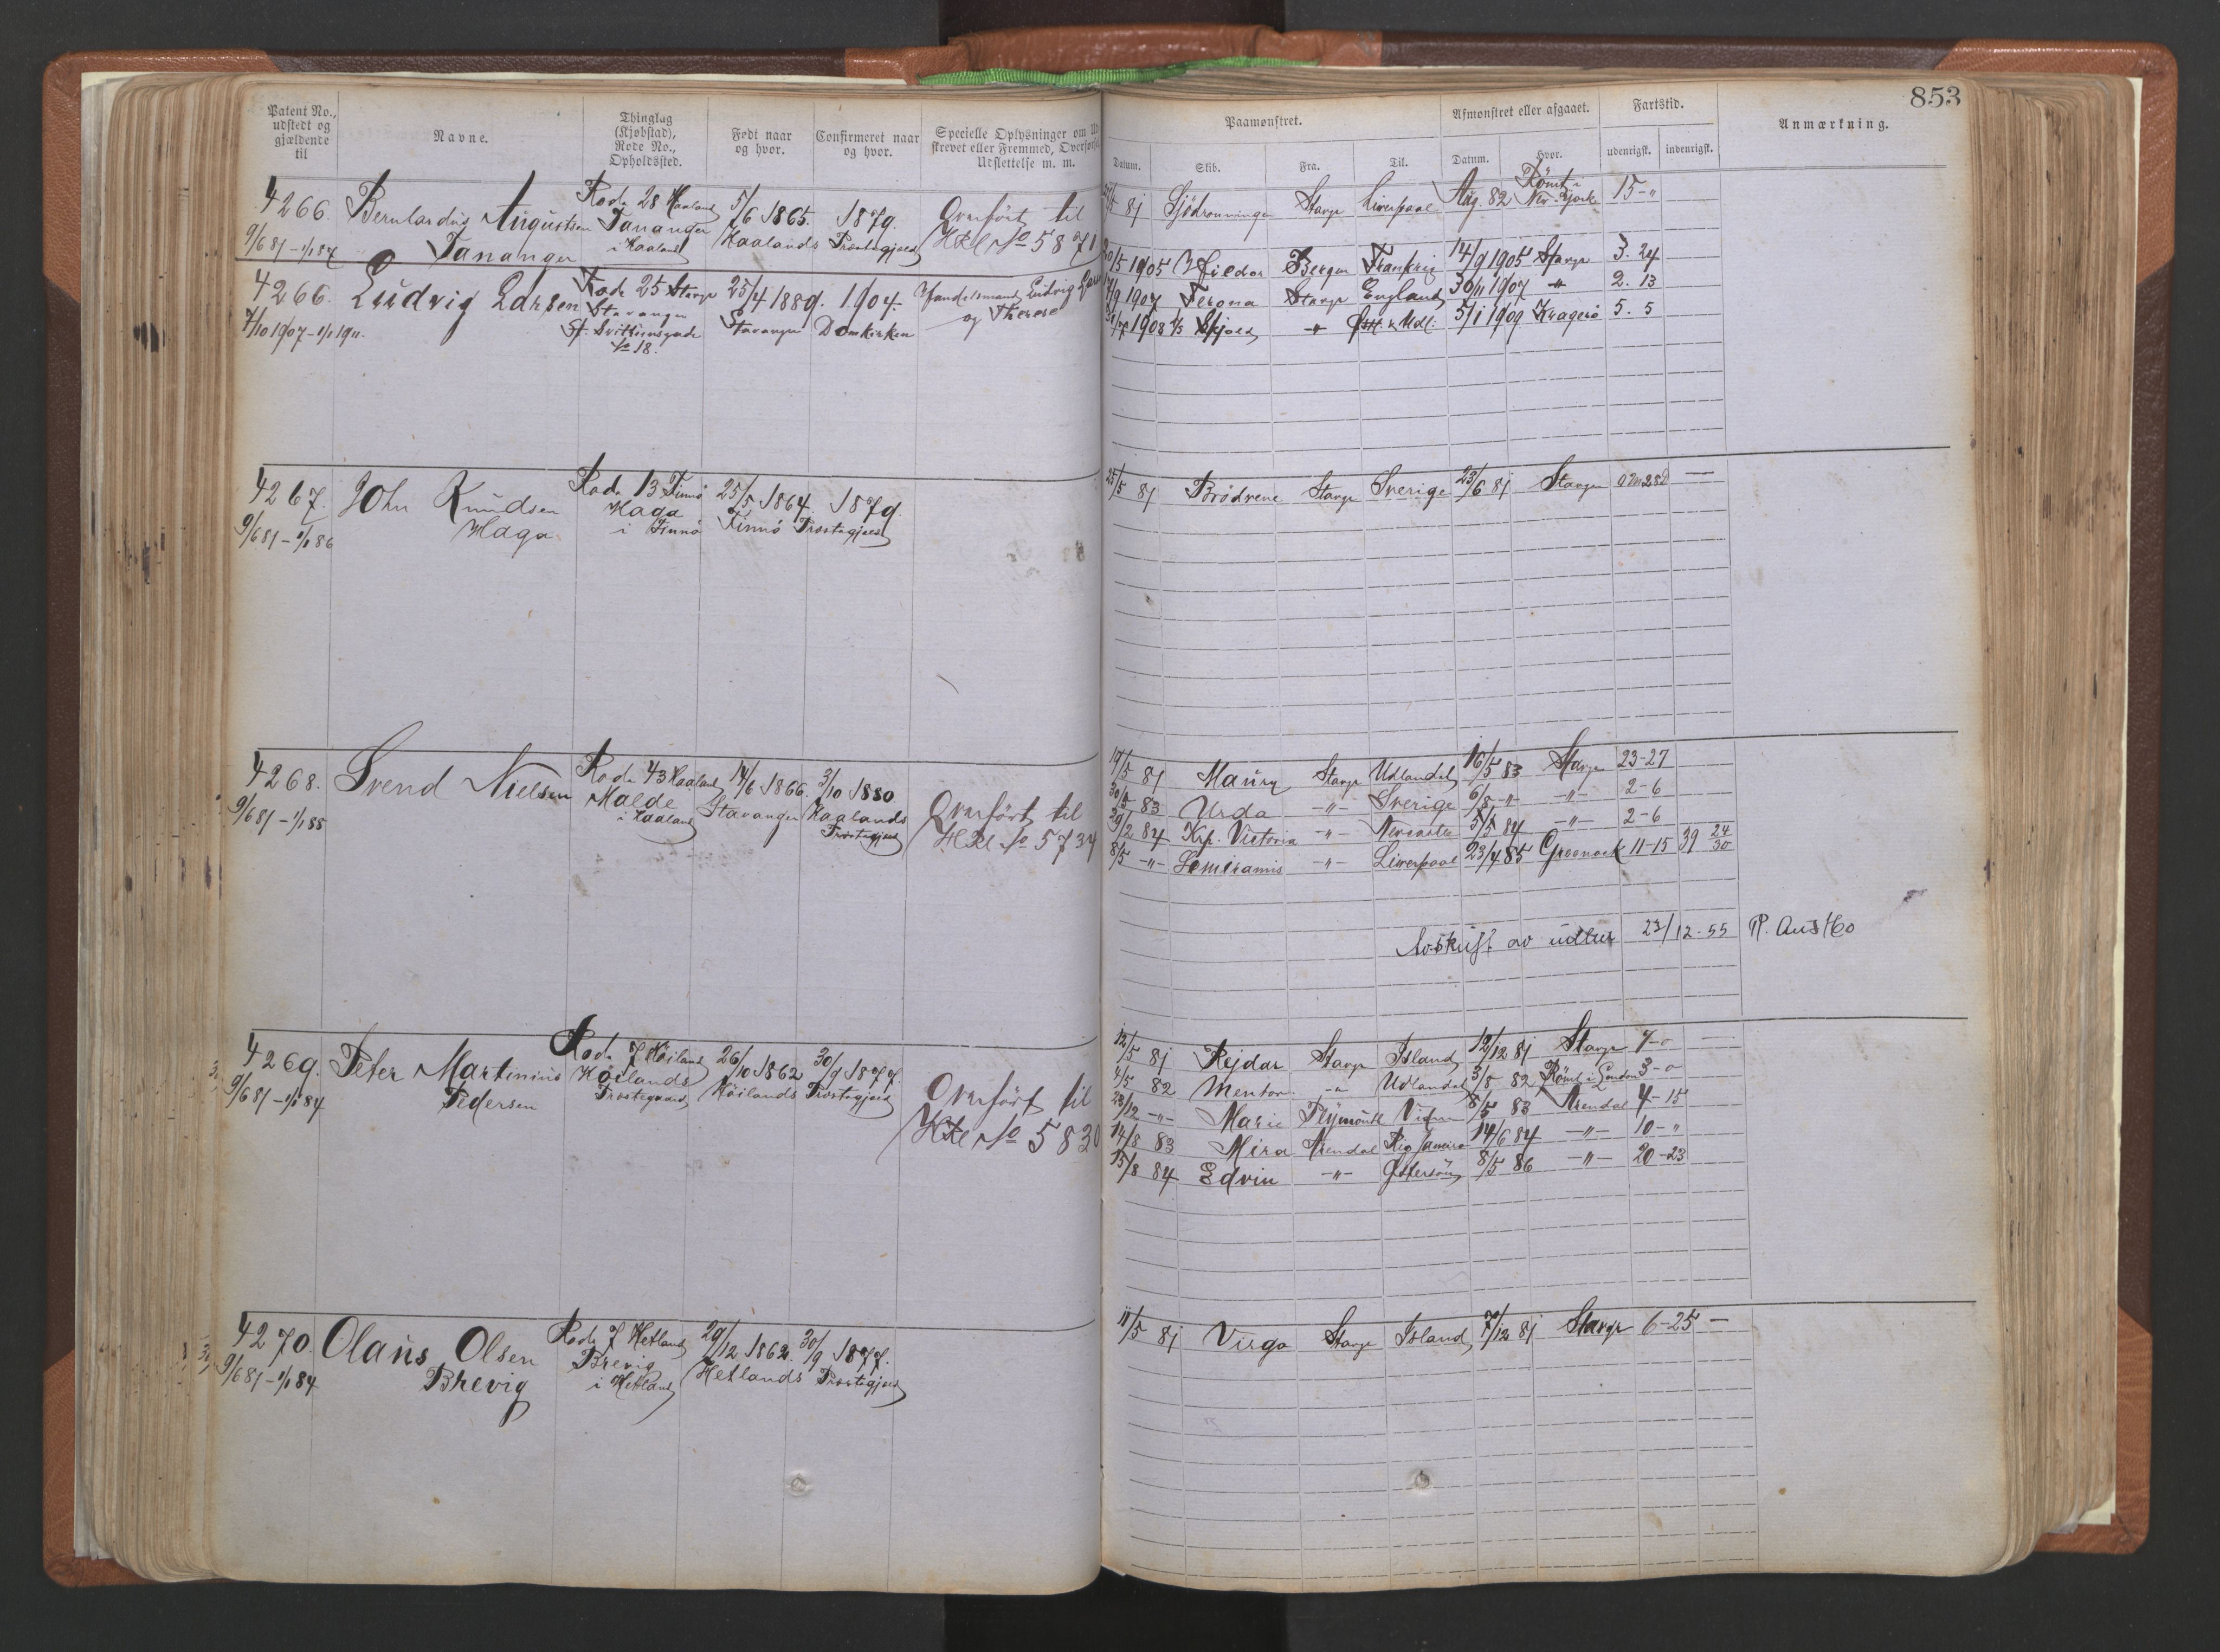 853
Patent No., udstedt og gjældende til
Navne.
Thinglag (Kjøbstad), Rode No., Opholdssted.
Født naar og hvor.
Confirmeret naar og hvor.
Specielle Oplysninger om Ud
skrevet eller Fremmed, Overført
Udslettelse m. m.
Paamønstret.
Afmønstret eller afgaaet.
Fartstid.
Anmærkning.
Datum. Skib. Fra. Til. Datum. Hvor. udenrigsk. indenrigsk.
4266. Bernhardus Augustsen Rode 28 Haaland 5/6 1865. 1879. Overført til
9/6 81 - 1/1 87 Tananger Tananger i Haaland Haalands Præstegjæld HRl No 5871
81 Sjødronningen Stavgr Liverpool Aug. 82 Rømt i New-York 15-"
4266. Ludvig Larsen Rode 25 Stavgr 25/4 1889. 1904. Handelsmand Ludvig
7/10 1907 - 1/1 1911. Stavanger Stavanger Domkirken og Therese
St. Svithunsgade
No 18.
/5 1905 Bergen Frankrig 14/9 1905 Stavgr 3. 24
/9 1907 Verona Stavgr England 30/11 1907 " 2. 13
1908 D/S Skjold " 5/1 1909 Kragerø 5. 5
4267. John Knudsen Rode 13 Finnø 25/5 1864. 1879.
9/6 81 - 1/1 86 Haga Haga i Finnø Finnø Præstegjæld
25/5 81 Brødrene Stavgr Sverige 23/6 81 Stavgr 0M28D —
4268. Svend Nielsen Rode 43 Haaland 14/6 1866. 3/10 1880 Overført til
9/6 81 - 1/1 88 Malde i Haaland Stavanger Haalands Præstegjæld HRl No 5734
19/5 81 Maury Stavgr Udlandet 16/5 83 Stavgr 23-27
30/5 83 Urda -"- Sverige 6/8 -"- -"- 2-6
29/2 84 Kp. Victoria -"- Newcastle 5/5 84 -"- 2-6
8/5 -"- Semiramis -"- Liverpool 23/4 85 Greenock 11-15 39 24/30
Avskrift av udtur 23/12-55 R. Aus 160
4269. Peter Martinius Rode 7 Høiland 26/10 1862 30/9 1877. Overført til
9/6 81 - 1/1 84 Pedersen Høilands Præstegaard Høilands Præstegjæld HRl No 5830
12/5 81 Rejdar Stavgr Island 12/12 81 Stavgr 7-0 —
4/5 82 Mentor -"- Udlandet 3/8 82 Rømt i London 3-0
23/12 -"- Marie Plymouth 8/5 83 Arendal 4-15
14/8 83 Mira Arendal Rio Janeiro 14/6 84 -"- 10-"
15/8 84 Edvin -"- Østersøen 8/5 86 -"- 20-23
4270. Olaus Olsen Rode 7 Hetland 29/12 1862. 30/9 1877.
9/6 81 - 1/1 84 Brevig Brevig i Hetland Hetlands Præstegjæld
11/5 81 Virgo Stavgr Island 7/12 81 Stavgr 6-25 —